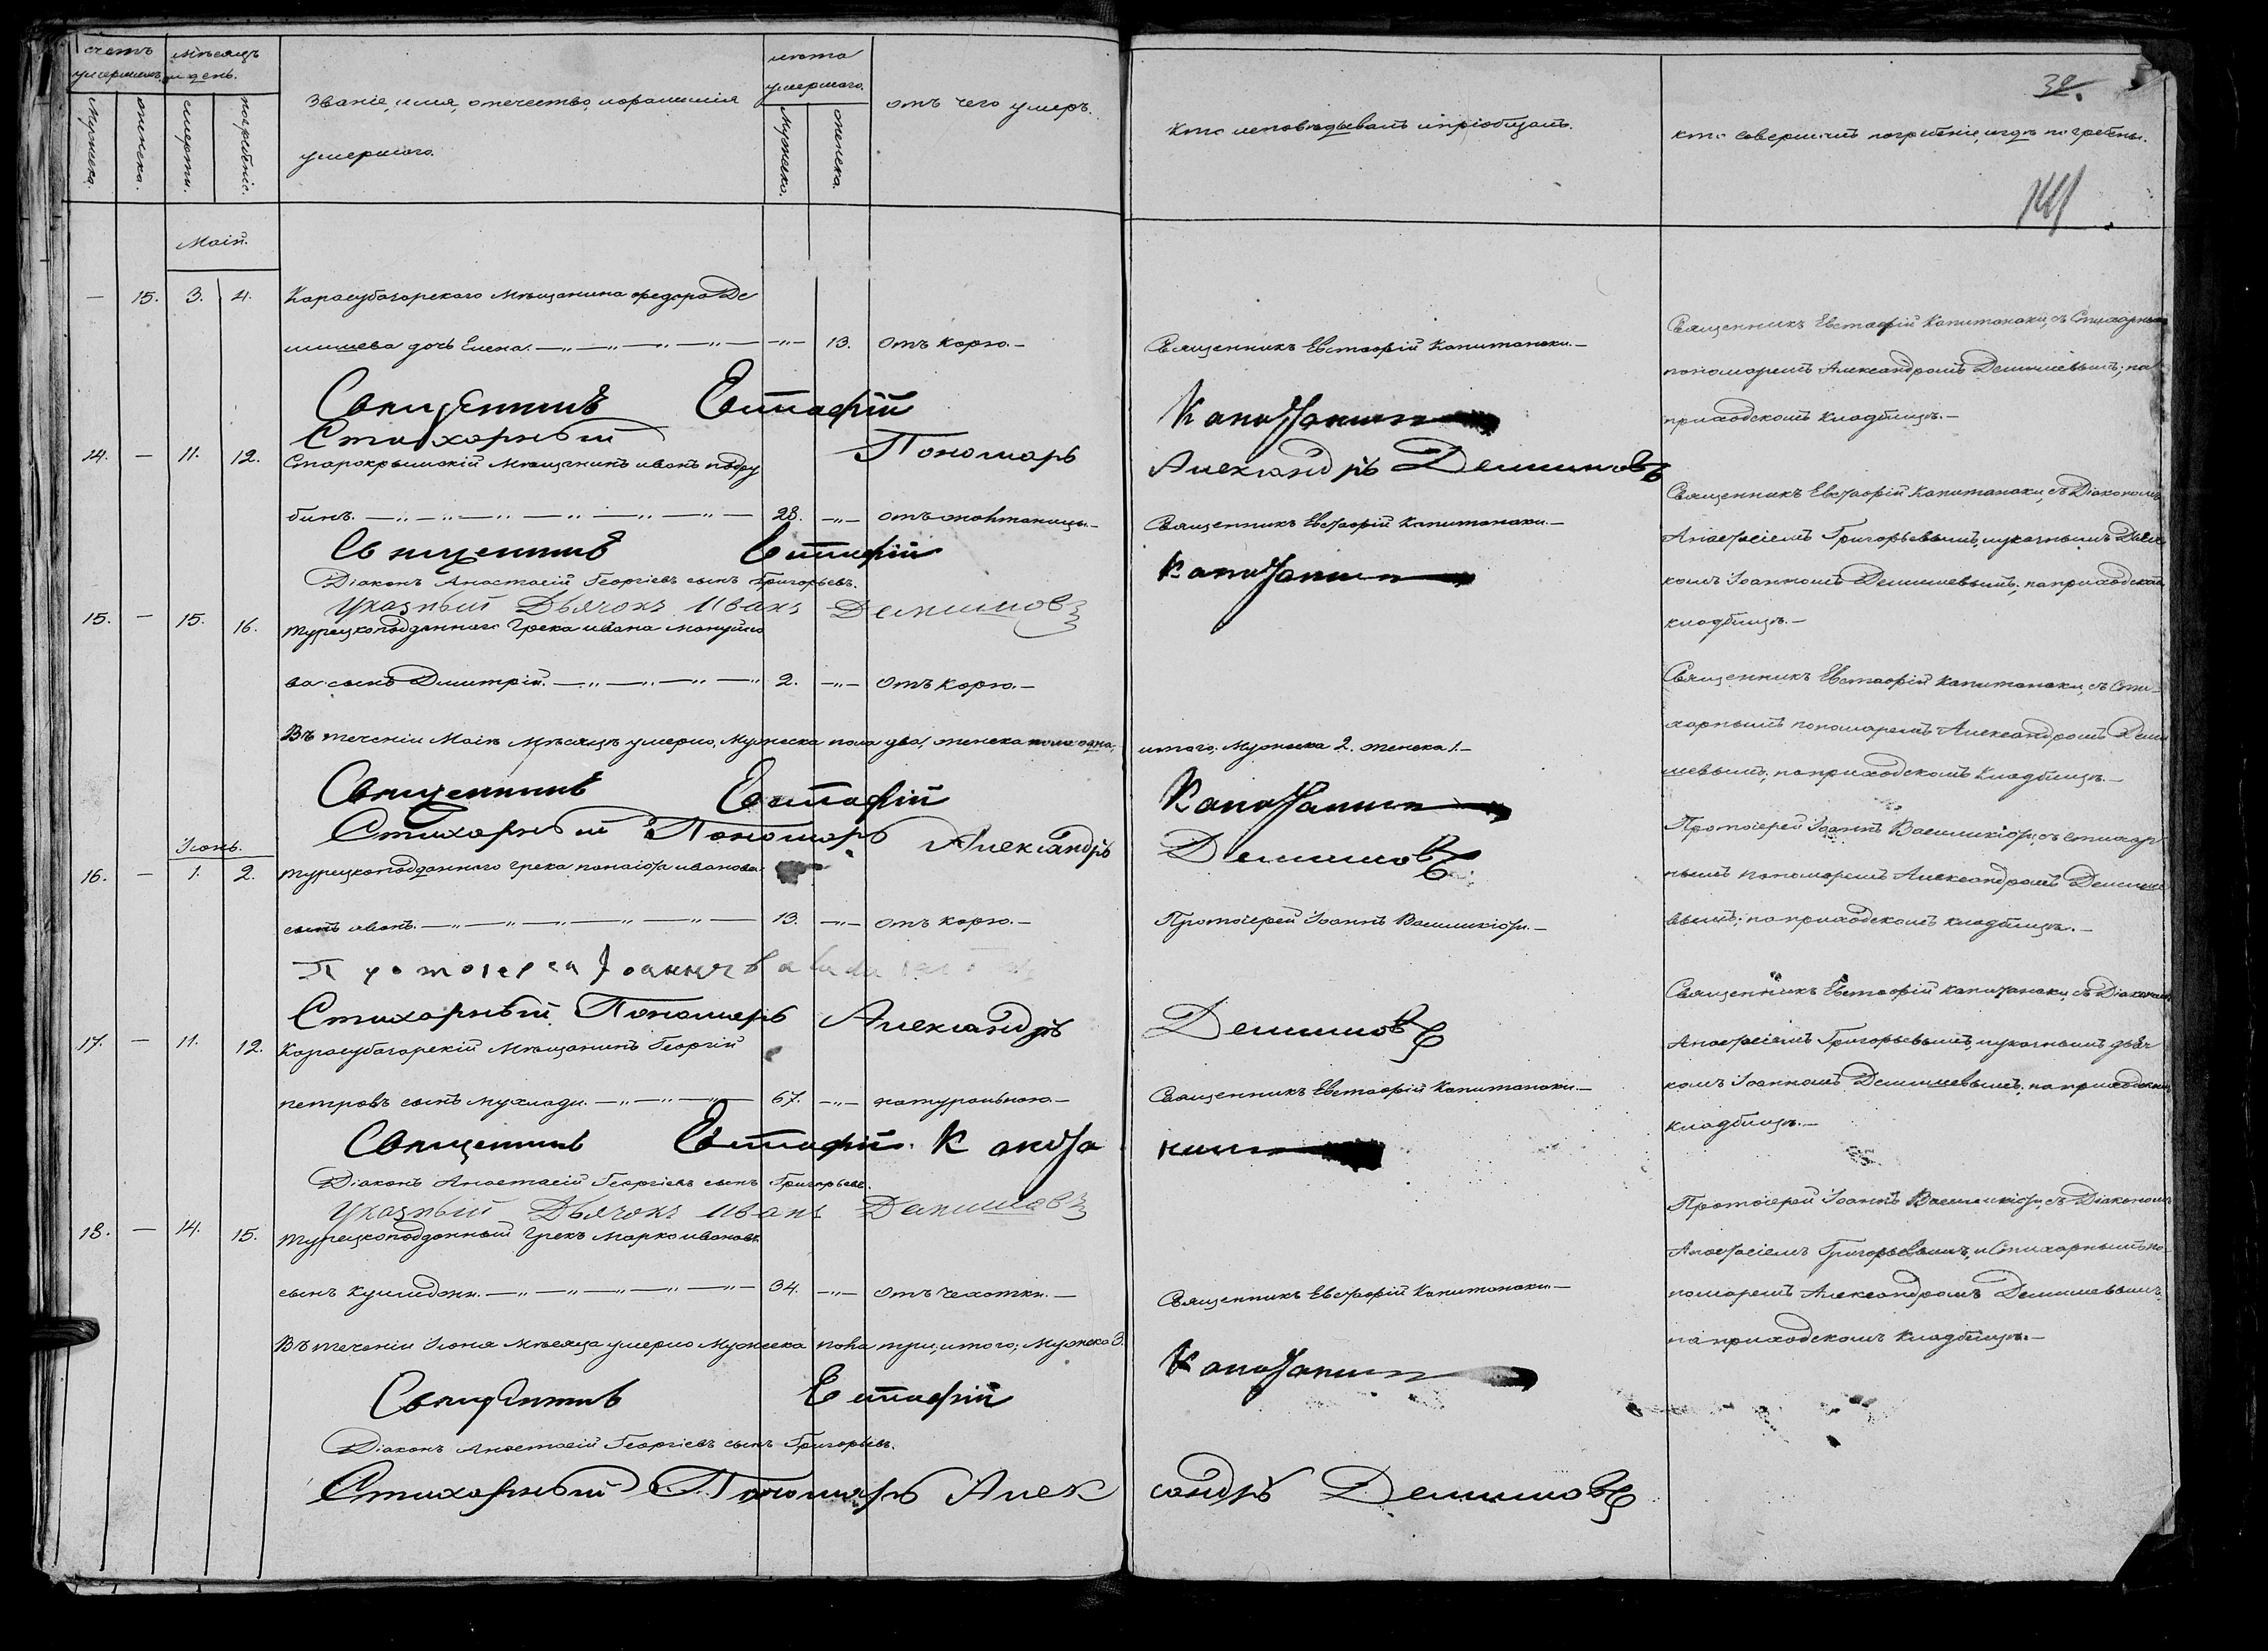 счетъ умершихъ.
мѣсяцъ и день.
Званіе, имя, отечество, и фамилія
умершаго.
лѣта умершаго.
отъ чего умеръ.
Мужеска.
женска.
смерти.
погребенія.
Мужеска.
женска.
кто исповѣдывалъ и пріобщалъ.
кто совершалъ погребеніе, и гдѣ погребены.
39.
Маій.
— 15. 3. 4. Карасубазарскаго мѣщанина федора Де
мишева дочь Елена. 13. отъ корю.
Священникъ Евстафій Капитанаки.
Священникъ Евстафій Капитанаки, съ Стихарнымъ
пономаремъ Александромъ Демишевымъ; на
приходскомъ кладбищѣ.
Священникъ Евстафій Капитанаки
Стихарный Пономарь Александръ Демишовъ
14. — 11. 12. Старокрымскій мѣщанинъ иванъ
бинъ. 28. отъ
Священникъ Евстафій Капитанаки.
Священникъ Евстафій Капитанаки, съ Діакономъ
Анастасіемъ Григорьевымъ, и указнымъ Дьяч
комъ Іоанномъ Демишевымъ; на приходскомъ
кладбищѣ.
Священникъ Евстафій Капитанаки
Діаконъ Анастасій Георгіевъ сынъ Григорьевъ.
Указный Дьячокъ Иванъ Демишовъ
15. — 15. 16. Турецкоподданнаго Грека ивана мануйло
ва сынъ Дмитрій. 2. отъ корю.
Священникъ Евстафій Капитанаки, съ Сти
харнымъ пономаремъ Александромъ Деми
шевымъ, на приходскомъ кладбищѣ.
Въ теченіи Маія мѣсяцѣ умерло, Мужеска пола два, женска пола одна,
итого: Мужеска 2. женска 1.
Священникъ Евстафій Капитанаки
Стихарный Пономарь Александръ Демишовъ
Іюнь.
16. — 1. 2. Турецкоподданнаго грека панаіота иванова
сынъ иванъ. 13. отъ корю.
Протоіерей Іоаннъ Василикіоти.
Протоіерей Іоаннъ Василикіоти, съ стихар
нымъ пономаремъ Александромъ Демише
вымъ; на приходскомъ кладбищѣ.
Протоіерей Іоаннъ
Стихарный Пономарь Александръ Демишовъ
17. — 11. 12. Карасубазарскій мѣщанинъ Георгій
петровъ сынъ мухлади. 67. натуральною.
Священникъ Евстафій Капитанаки.
Священникъ Евстафій Капитанаки, съ Діакономъ
Анастасіемъ Григорьевымъ, и указнымъ дьяч
комъ Іоанномъ Демишевымъ, на приходскомъ
кладбищѣ.
Священникъ Евстафій Капитанаки
Діаконъ Анастасій Георгіевъ сынъ Григорьевъ.
Указный Дьячокъ Иванъ Демишовъ
18. — 14. 15. Турецкоподданный Грекъ Марко ивановъ
сынъ 34. отъ чахотки.
Священникъ Евстафій Капитанаки.
Протоіерей Іоаннъ Василикіоти, съ Діакономъ
Анастасіемъ Григорьевымъ, и Стихарнымъ по
номаремъ Александромъ Демишевымъ,
на приходскомъ кладбищѣ.
Въ теченіи Іюня мѣсяца умерло Мужеска пола три, итого; Мужеска 3.
Священникъ Евстафій Капитанаки
Діаконъ Анастасій Георгіевъ сынъ Григорьевъ.
Стихарный Пономарь Александръ Демишовъ